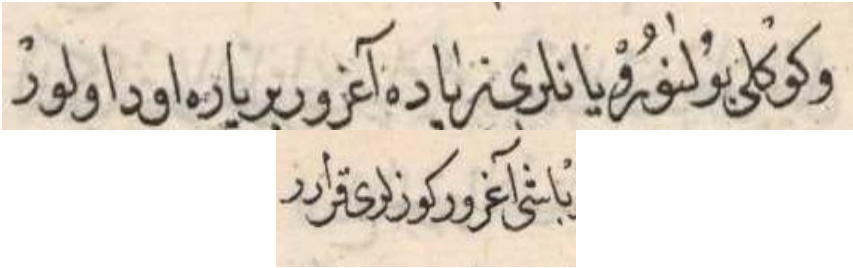 وكوكلی بولنور و یانلری زیاده آغرور بر یاره اود اولور
باشی آغرور كوزلری قرارر